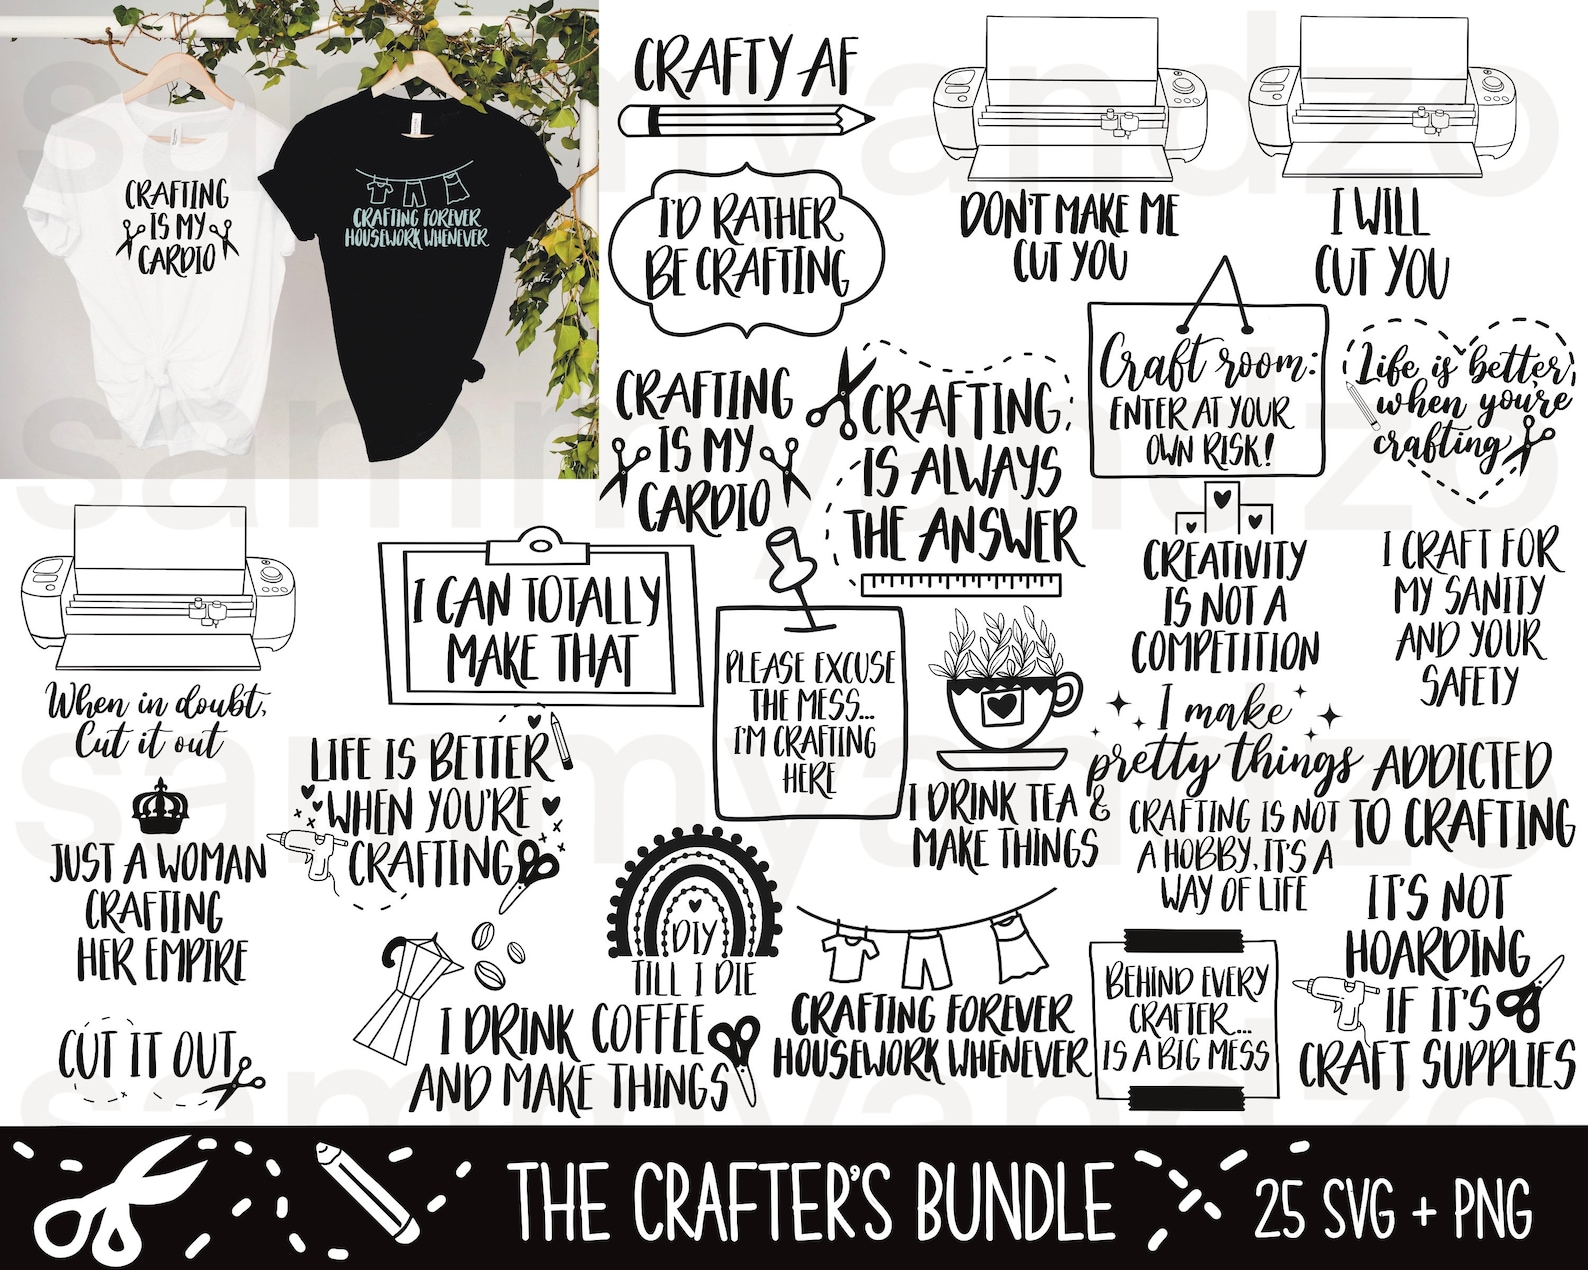 CRAFTING
IS MY
CARDIO
CRAFTING FOREVER
HOUSEWORK WHENEVER
CRAFTY AF
I'D RATHER
BE CRAFTING
DON'T MAKE ME
CUT YOU
I WILL
CUT YOU
CRAFTING
IS MY
CARDIO
CRAFTING
IS ALWAYS
THE ANSWER
Craft room:
ENTER AT YOUR
OWN RISK!
Life is better
when you're
crafting
CREATIVITY
IS NOT A
COMPETITION
I CRAFT FOR
MY SANITY
AND YOUR
SAFETY
When in doubt,
Cut it out
I CAN TOTALLY
MAKE THAT
PLEASE EXCUSE
THE MESS...
I'M CRAFTING
HERE
I DRINK TEA &
MAKE THINGS
I make
pretty things
ADDICTED
TO CRAFTING
LIFE IS BETTER
WHEN YOU'RE
CRAFTING
CRAFTING IS NOT
A HOBBY, IT'S A
WAY OF LIFE
JUST A WOMAN
CRAFTING
HER EMPIRE
DIY
TILL I DIE
IT'S NOT
HOARDING
IF IT'S
CRAFT SUPPLIES
CUT IT OUT
I DRINK COFFEE
AND MAKE THINGS
CRAFTING FOREVER
HOUSEWORK WHENEVER
BEHIND EVERY
CRAFTER...
IS A BIG MESS
THE CRAFTER'S BUNDLE
25 SVG + PNG
sammyandzo
sammyandzo
sammyandzo
sammyandzo